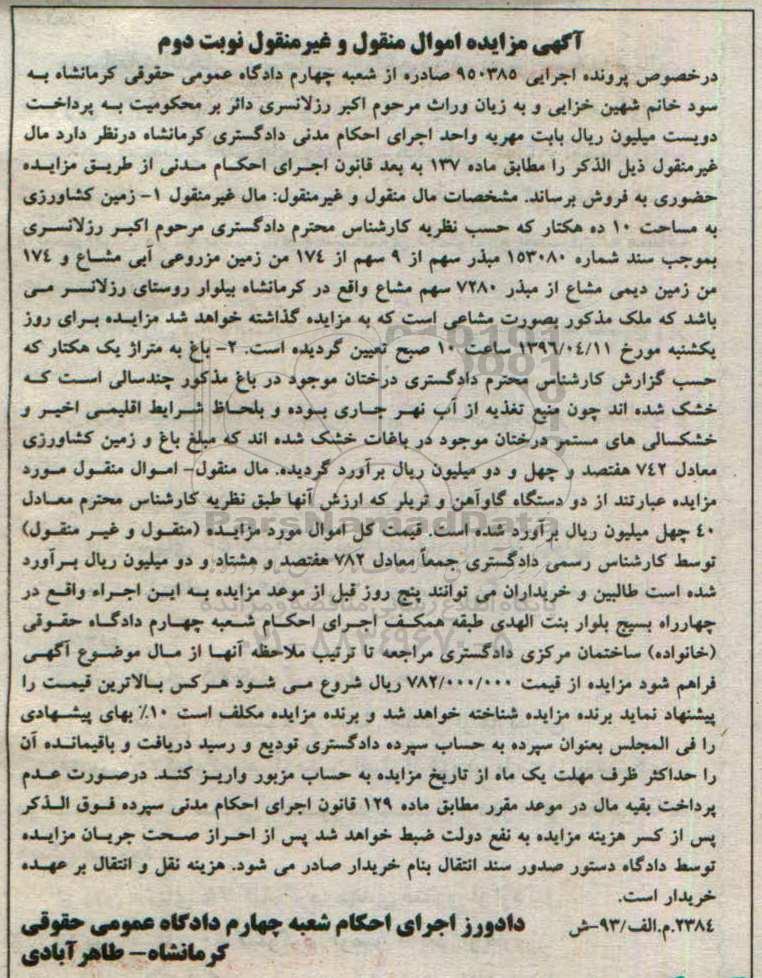 آگهی مزایده اموال منقول و غیرمنقول نوبت دوم
درخصوص پرونده اجرایی ۹۵۰۳۸۵ صادره از شعبه چهارم دادگاه عمومی حقوقی کرمانشاه به
سود خانم شهین خزایی و به زیان وراث مرحوم اکبر رزلانسری دائر بر محکومیت به پرداخت
دویست میلیون ریال بابت مهریه واحد اجرای احکام مدنی دادگستری کرمانشاه درنظر دارد مال
غیرمنقول ذیل الذکر را مطابق ماده ۱۳۷ به بعد قانون اجرای احکام مدنی از طریق مزایده
حضوری به فروش برساند. مشخصات مال منقول و غیرمنقول: مال غیرمنقول ۱- زمین کشاورزی
به مساحت ۱۰ ده هکتار که حسب نظریه کارشناس محترم دادگستری مرحوم اکبر رزلانسری
بموجب سند شماره ۱۵۳۰۸۰ مبذر سهم از ۹ سهم از ۱۷۴ من زمین مزروعی آبی مشاع و ۱۷۴
من زمین دیمی مشاع از مبذر ۷۲۸۰ سهم مشاع واقع در کرمانشاه بیلوار روستای رزلانسر می
باشد که ملک مذکور بصورت مشاعی است که به مزایده گذاشته خواهد شد مزایده برای روز
یکشنبه مورخ ۱۳۹۶/۰۴/۱۱ ساعت ۱۰ صبح تعیین گردیده است. ۲- باغ به متراژ یک هکتار که
حسب گزارش کارشناس محترم دادگستری درختان موجود در باغ مذکور چندسالی است که
خشک شده اند چون منبع تغذیه از آب نهر جاری بوده و بلحاظ شرایط اقلیمی اخیر و
خشکسالی های مستمر درختان موجود در باغات خشک شده اند که مبلغ باغ و زمین کشاورزی
معادل ۷۴۲ هفتصد و چهل و دو میلیون ریال برآورد گردیده. مال منقول- اموال منقول مورد
مزایده عبارتند از دو دستگاه گاوآهن و تریلر که ارزش آنها طبق نظریه کارشناس محترم معادل
۴۰ چهل میلیون ریال برآورد شده است. قیمت کل اموال مورد مزایده (منقول و غیر منقول)
توسط کارشناس رسمی دادگستری جمعاً معادل ۷۸۲ هفتصد و هشتاد و دو میلیون ریال برآورد
شده است طالبین و خریداران می توانند پنج روز قبل از موعد مزایده به این اجراء واقع در
چهارراه بسیج بلوار بنت الهدی طبقه همکف اجرای احکام شعبه چهارم دادگاه حقوقی
(خانواده) ساختمان مرکزی دادگستری مراجعه تا ترتیب ملاحظه آنها از مال موضوع آگهی
فراهم شود مزایده از قیمت ۷۸۲/۰۰۰/۰۰۰ ریال شروع می شود هرکس بالاترین قیمت را
پیشنهاد نماید برنده مزایده شناخته خواهد شد و برنده مزایده مکلف است ۱۰٪ بهای پیشنهادی
را فی المجلس بعنوان سپرده به حساب سپرده دادگستری تودیع و رسید دریافت و باقیمانده آن
را حداکثر ظرف مهلت یک ماه از تاریخ مزایده به حساب مزبور واریز کند. درصورت عدم
پرداخت بقیه مال در موعد مقرر مطابق ماده ۱۲۹ قانون اجرای احکام مدنی سپرده فوق الذکر
پس از کسر هزینه مزایده به نفع دولت ضبط خواهد شد پس از احراز صحت جریان مزایده
توسط دادگاه دستور صدور سند انتقال بنام خریدار صادر می شود. هزینه نقل و انتقال بر عهده
خریدار است.
۲۳۸۴.م.الف/۹۳-ش دادورز اجرای احکام شعبه چهارم دادگاه عمومی حقوقی
کرمانشاه- طاهرآبادی
ParsNamadData
پایگاه اطلاع رسانی مناقصه و مزایده